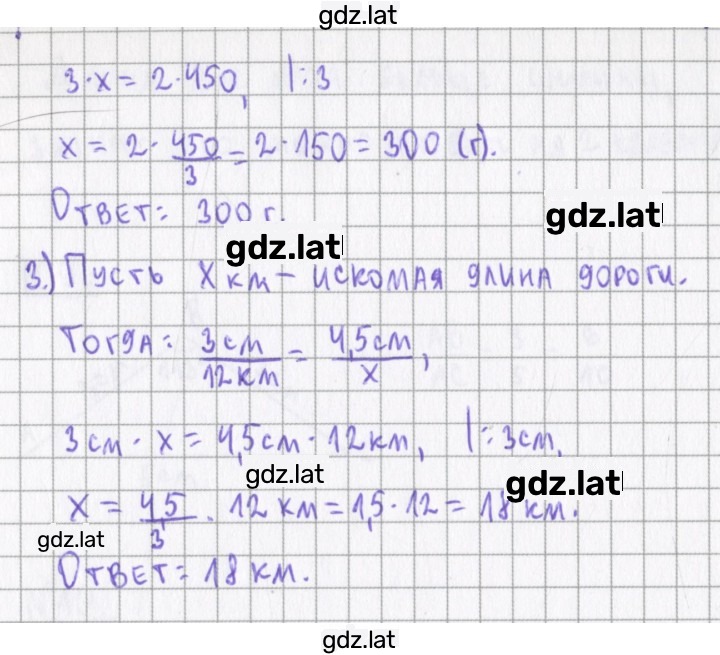 gdz.lat
3·x = 2·450, |:3
x = 2· 450/3 = 2·150 = 300 (г).
Ответ: 300 г.
gdz.lat
gdz.lat
3.) Пусть x км – искомая длина дороги.
Тогда: 3 см/12 км = 4,5 см/x,
3 см · x = 4,5 см · 12 км, |: 3 см,
gdz.lat
gdz.lat
x = 4,5/3 · 12 км = 1,5·12 = 18 км.
gdz.lat
Ответ: 18 км.
gdz.lat